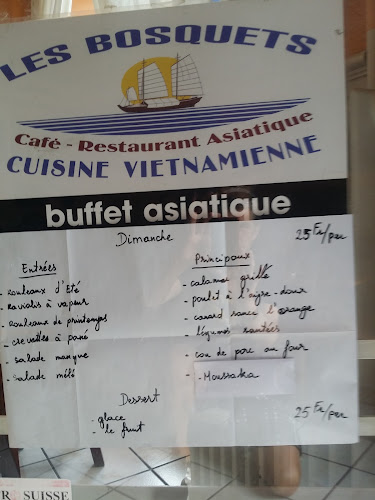 LES BOSQUETS
Café - Restaurant Asiatique
CUISINE VIETNAMIENNE
buffet asiatique
Dimanche 25 Fr/per
Entrées
- Rouleaux d'Eté
- Raviolis à vapeur
- Rouleaux de printemps
- crevettes à pané
- salade mangue
- Salade mélé
Principaux
- calamar grillé
- poulet à l'aigre-doux
- canard sauce l'orange
- légumes sautées
- cou de porc au four
- Moussaka
Dessert
- glace
- le fruit
25 Fr/per
SUISSE